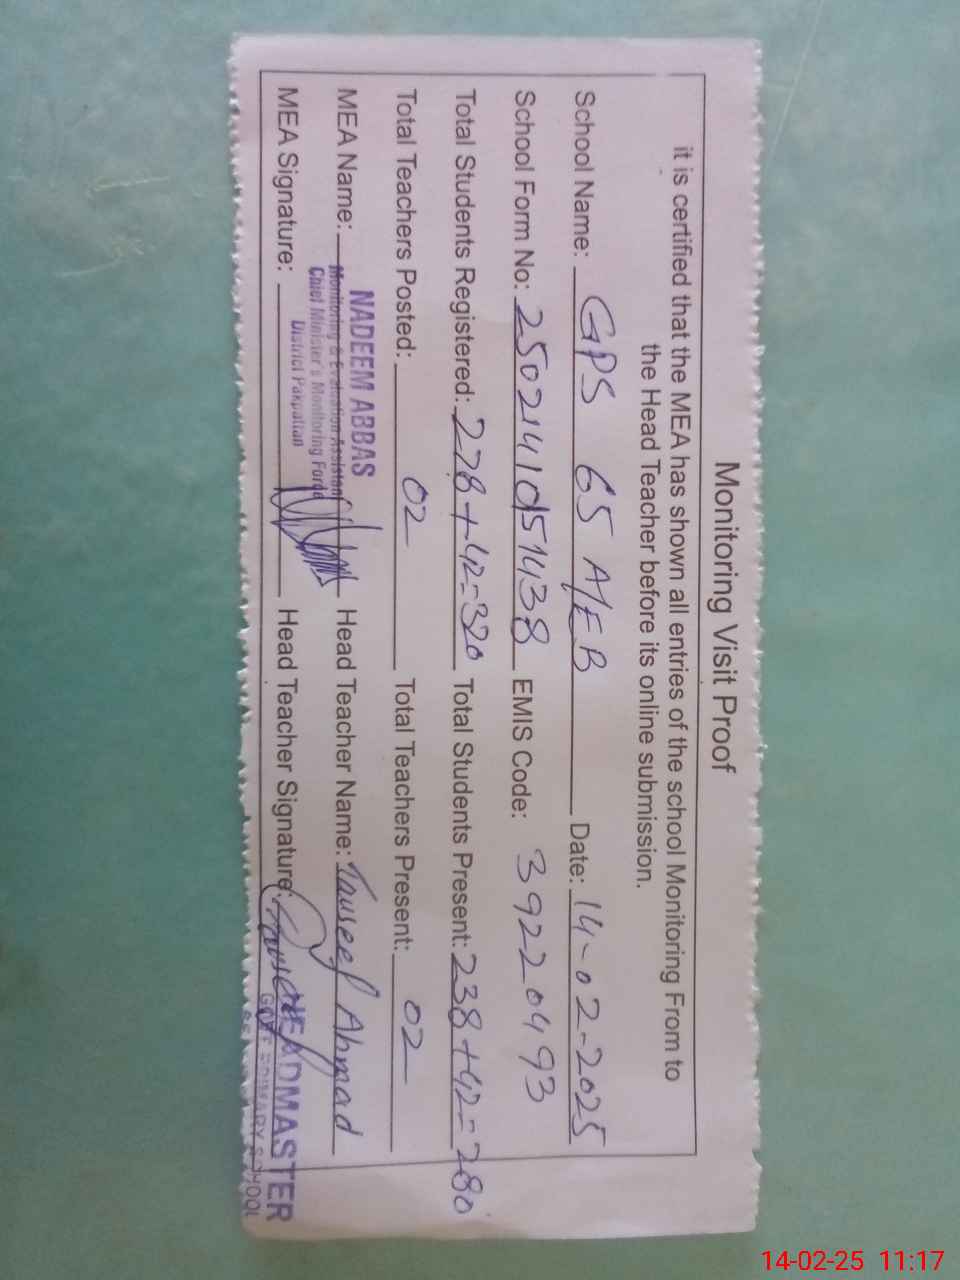 Monitoring Visit Proof
it is certified that the MEA has shown all entries of the school Monitoring From to
the Head Teacher before its online submission.
School Name: GPS 65 A/EB Date: 14-02-2025
School Form No: 2502141051438 EMIS Code: 39220493
Total Students Registered: 278+42=320 Total Students Present: 238+42=280
Total Teachers Posted: 02 Total Teachers Present: 02
MEA Name: Head Teacher Name: Tauseef Ahmad
NADEEM ABBAS
Monitoring & Evaluation Assistant
Chief Minister's Monitoring Force
District Pakpattan
MEA Signature: Head Teacher Signature:
HEADMASTER
GOVT PRIMARY SCHOOL
14-02-25 11:17